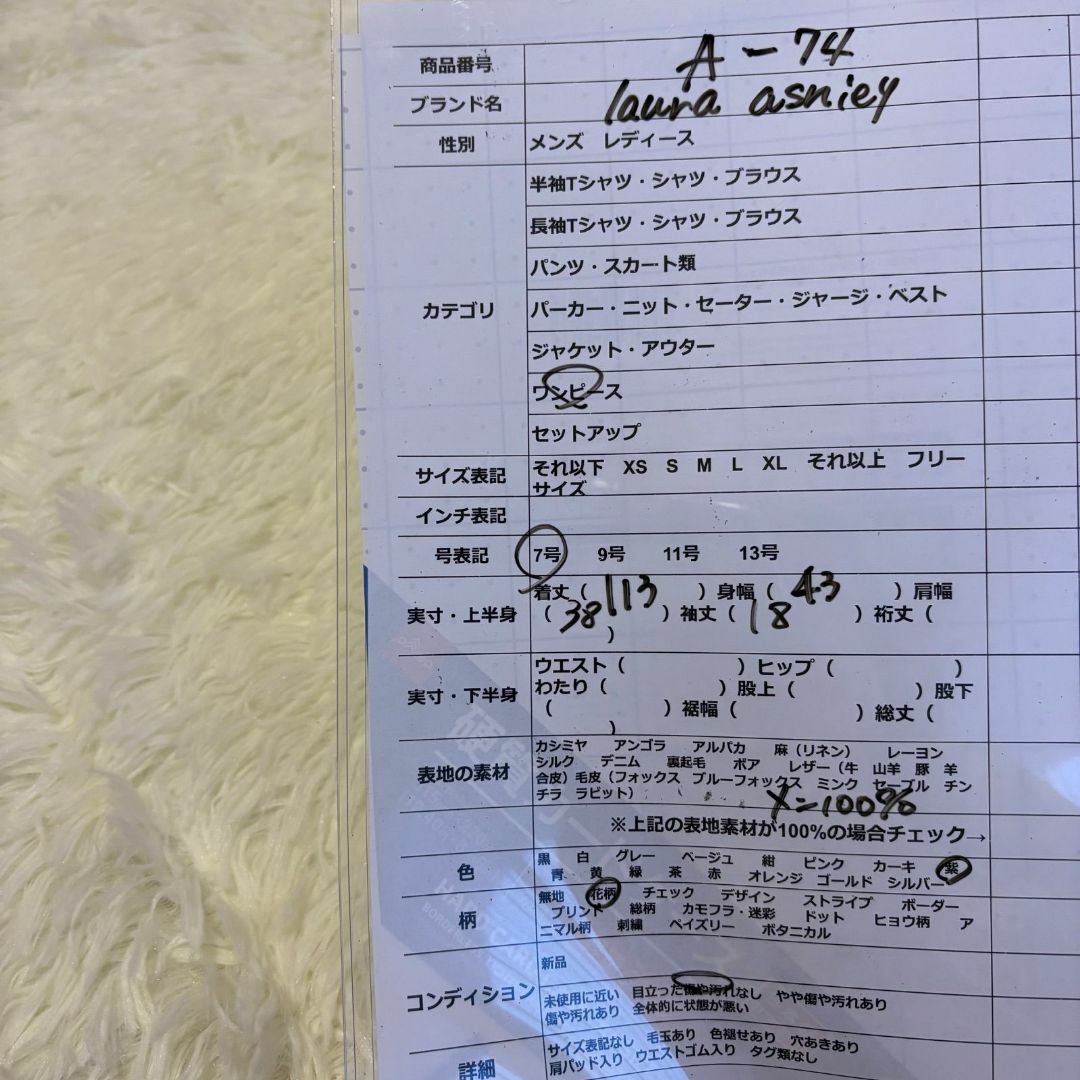 商品番号 A-74
ブランド名 laura asniey
性別 メンズ レディース
半袖Tシャツ・シャツ・ブラウス
長袖Tシャツ・シャツ・ブラウス
パンツ・スカート類
カテゴリ パーカー・ニット・セーター・ジャージ・ベスト
ジャケット・アウター
ワンピース
セットアップ
サイズ表記 それ以下 XS S M L XL それ以上 フリー
サイズ
インチ表記
号表記 7号 9号 11号 13号
着丈（ 113 ）身幅（ 43 ）肩幅
実寸・上半身 （ 38 ）袖丈（ 18 ）裄丈（
）
ウエスト（ ）ヒップ（ ）
実寸・下半身 わたり（ ）股上（ ）股下
（ ）裾幅（ ）総丈（
）
カシミヤ アンゴラ アルパカ 麻（リネン） レーヨン
シルク デニム 裏起毛 ボア レザー（牛 山羊 豚 羊
表地の素材 合皮）毛皮（フォックス ブルーフォックス ミンク セーブル チン
チラ ラビット） メン100%
※上記の表地素材が100%の場合チェック→
色 黒 白 グレー ベージュ 紺 ピンク カーキ 紫
青 黄 緑 茶 赤 オレンジ ゴールド シルバー
柄 無地 花柄 チェック デザイン ストライプ ボーダー
プリント 総柄 カモフラ・迷彩 ドット ヒョウ柄 ア
ニマル柄 刺繍 ペイズリー ボタニカル
新品
コンディション 未使用に近い 目立った傷や汚れなし やや傷や汚れあり
傷や汚れあり 全体的に状態が悪い
詳細 サイズ表記なし 毛玉あり 色褪せあり 穴あきあり
肩パッド入り ウエストゴム入り タグ類なし